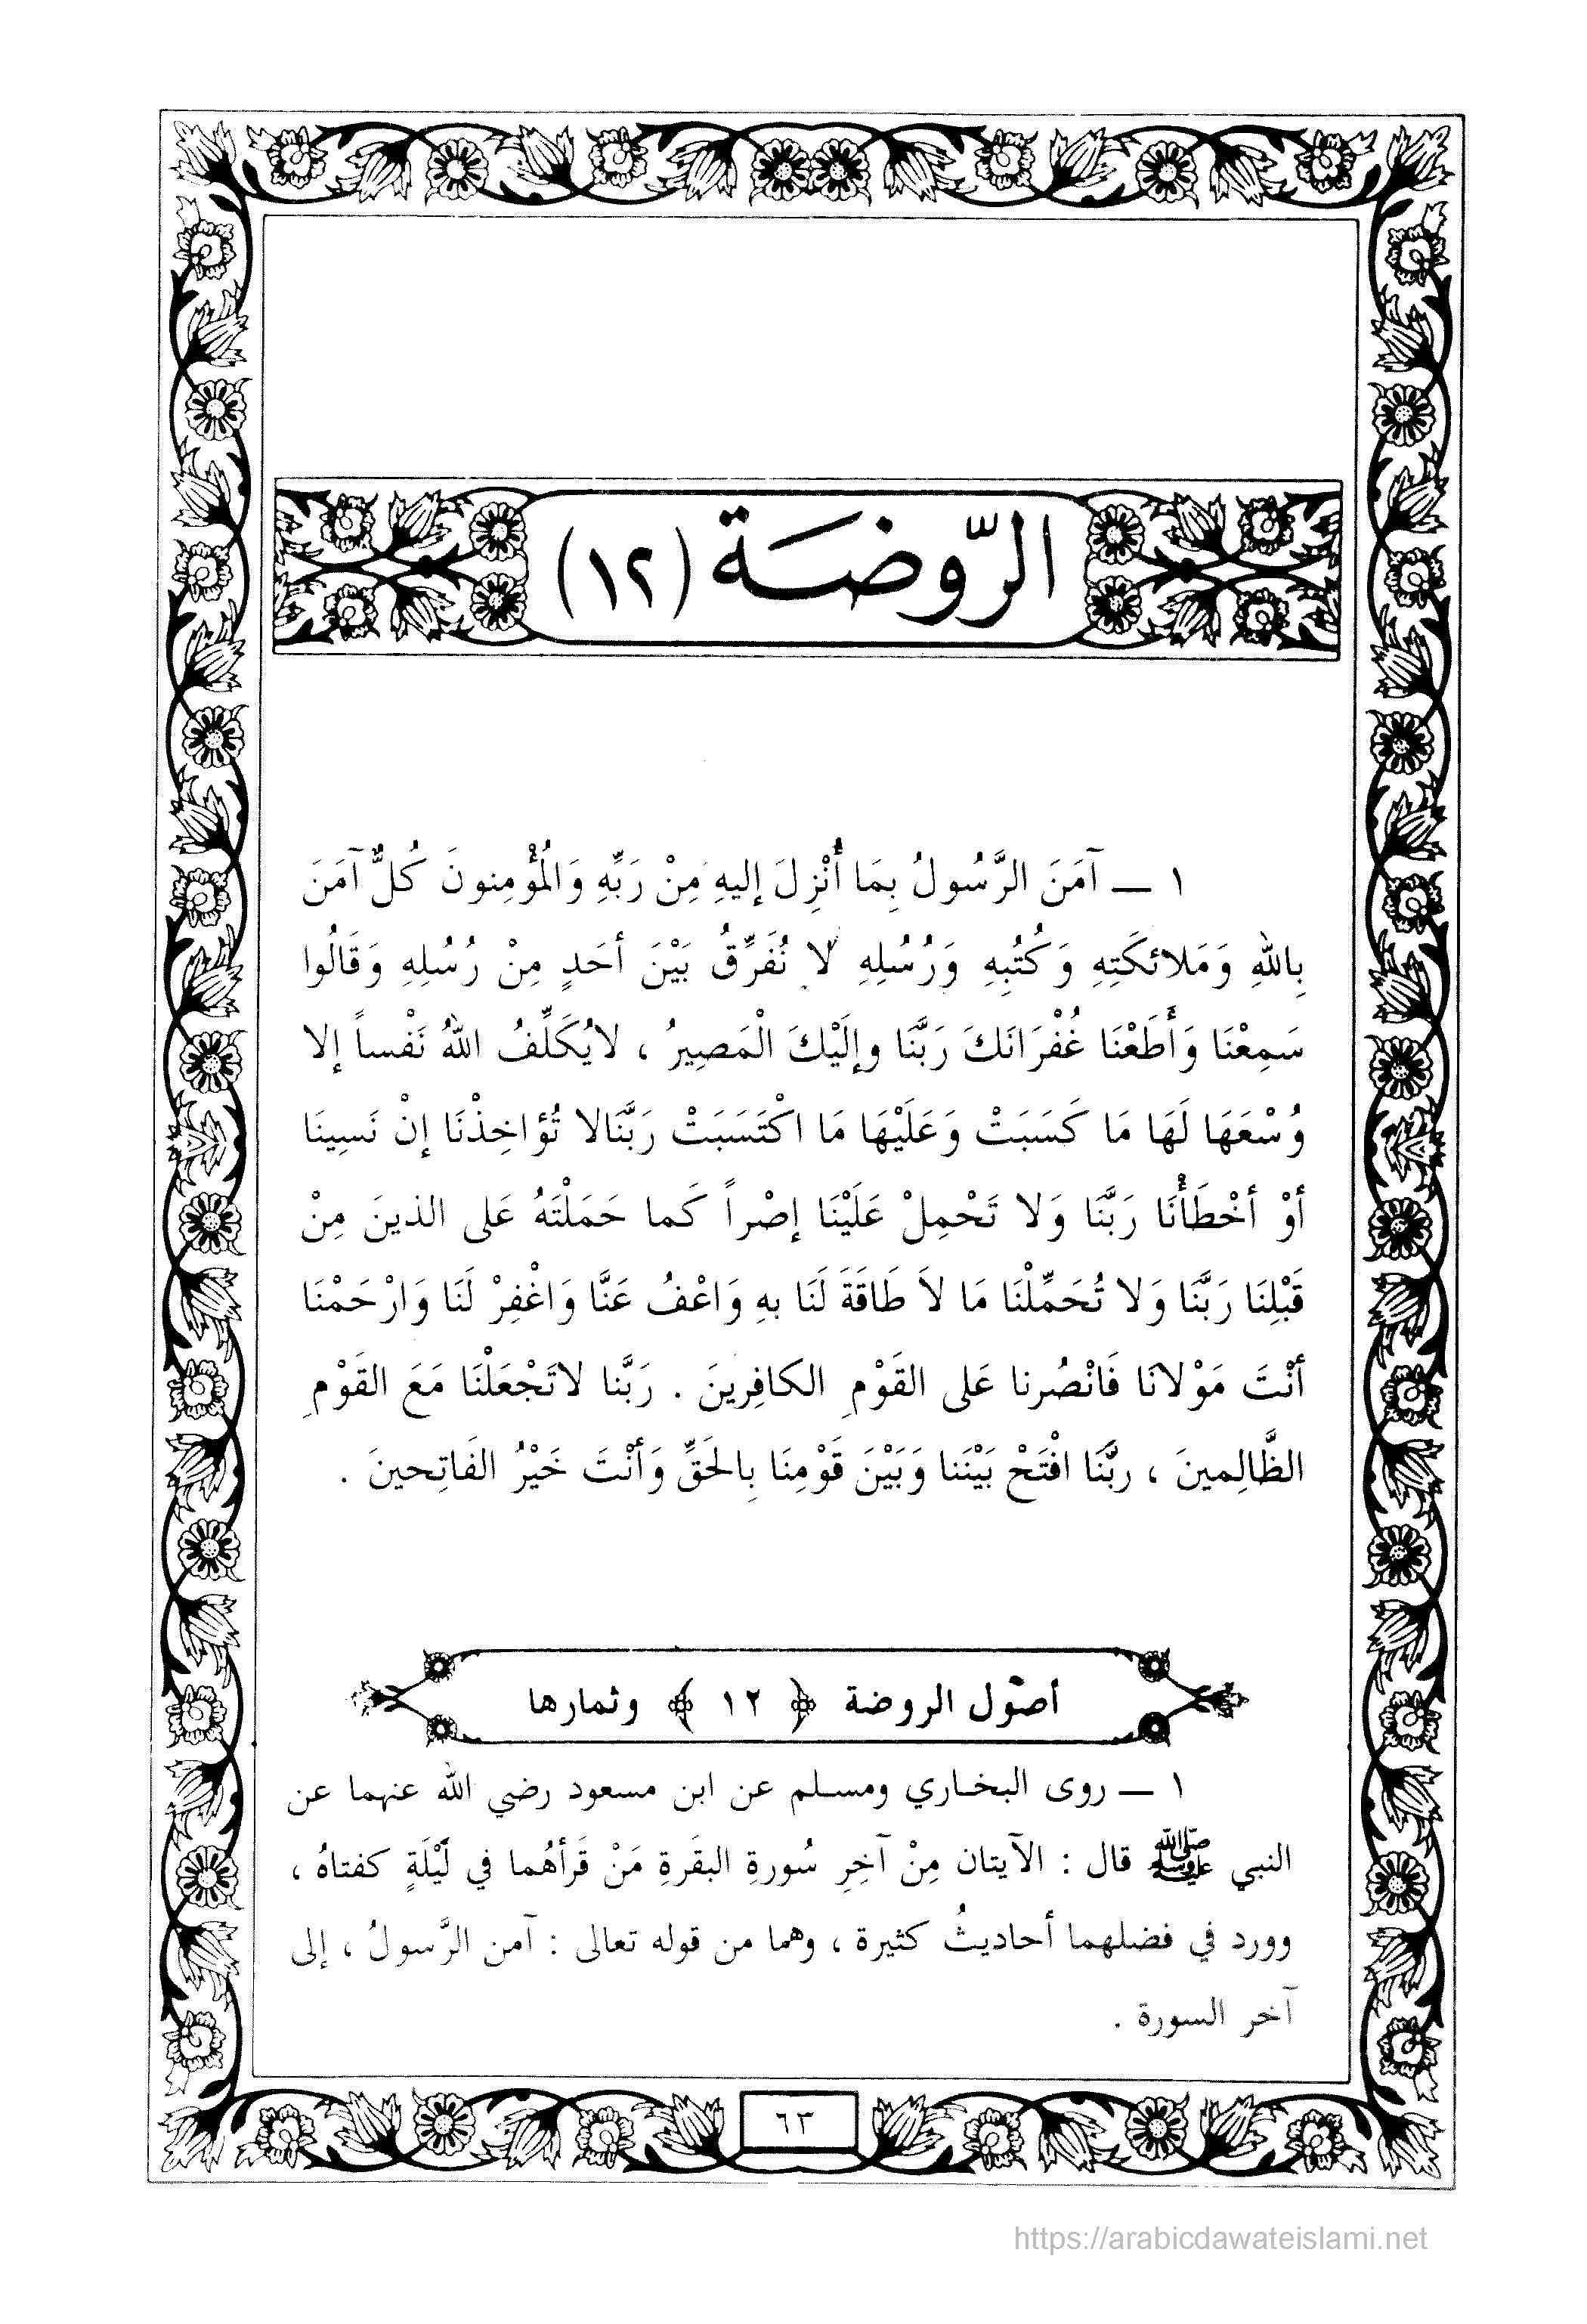 الرّوضة (١٢)
١ ــ آمَنَ الرَّسُولُ بِمَا أُنْزِلَ إليهِ مِنْ رَبِّهِ وَالْمُؤْمِنونَ كُلٌّ آمَنَ
بِاللهِ وَمَلائكَتِهِ وَكُتُبِهِ وَرُسُلِهِ لا نُفَرِّقُ بَيْنَ أحَدٍ مِنْ رُسُلِهِ وَقَالُوا
سَمِعْنَا وَأَطَعْنَا غُفْرَانَكَ رَبَّنَا وإلَيْكَ الْمَصِيرُ ، لايُكَلِّفُ اللهُ نَفْساً إلا
وُسْعَهَا لَهَا مَا كَسَبَتْ وَعَلَيْهَا مَا اكْتَسَبَتْ رَبَّنَالا تُؤاخِذْنَا إنْ نَسِينَا
أوْ أخْطَأْنَا رَبَّنَا وَلا تَحْمِلْ عَلَيْنَا إصْراً كَما حَمَلْتَهُ عَلى الذينَ مِنْ
قَبْلِنَا رَبَّنَا وَلا تُحَمِّلْنَا مَا لاَ طَاقَةَ لَنَا بهِ وَاعْفُ عَنَّا وَاغْفِرْ لَنَا وَارْحَمْنَا
أنْتَ مَوْلانَا فَانْصُرنا عَلى القَوْمِ الكافِرينَ . رَبَّنا لاتَجْعَلْنَا مَعَ القَوْمِ
الظَّالِمينَ ، ربَّنَا افْتَحْ بَيْنَنا وَبَيْنَ قَوْمِنَا بِالحَقِّ وَأنْتَ خَيْرُ الفَاتِحينَ .
أصول الروضة ﴿ ١٢ ﴾ وثمارها
١ ــ روى البخاري ومسلم عن ابن مسعود رضي الله عنهما عن
النبي ﷺ قال : الآيتان مِنْ آخِرِ سُورةِ البقَرةِ مَنْ قَرأهُما في لَيْلَةٍ كفتاهُ ،
وورد في فضلهما أحاديثُ كثيرة ، وهما من قوله تعالى : آمن الرَّسولُ ، إلى
آخر السورة .
٦٣
https://arabicdawateislami.net